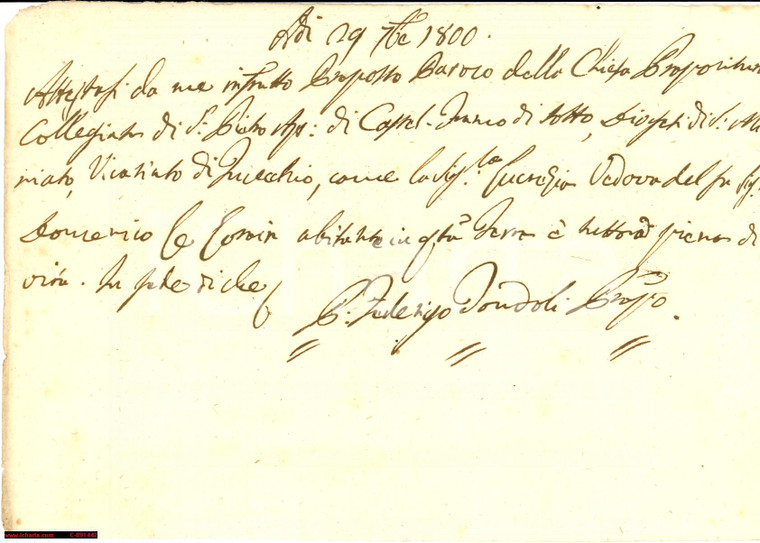 Adì 29 7bre 1800.
Attestasi da me infrātto Proposto Paroco della Chiesa Propositura
Collegiata di S. Pietro Ap: di Castel Franco di sotto, Diogesi di S. Mi
niato, Vicariato di Fucechio, come la Sig.ra Lucrezia Vedova del fu Sig.
Domenico abitante in qtā Terra è tuttora piena di
vita. In fede di che
P. Federigo Dondoli Propō.
www.ilcharta.com